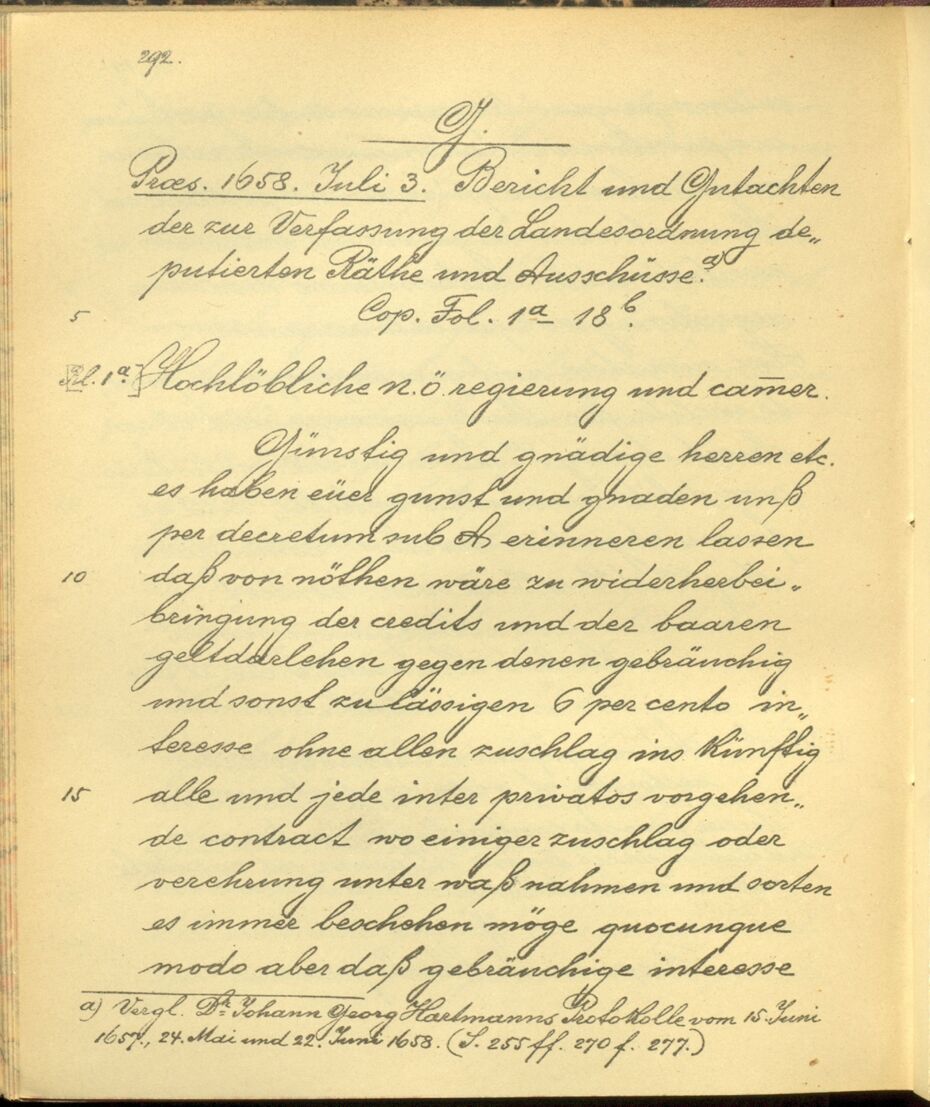 292.
G.
Præs. 1658. Juli 3. Bericht und Gutachten
der zur Verfassung der Landesordnung de„
putierten Räthe und Ausschüsse.a)
5 Cop. Fol. 1a – 18b.
[Fol. 1a.] Hochlöbliche n. ö. regierung und cam̄er.
Günstig und gnädige herren etc.
es haben eüer gunst und gnaden unß
per decretum sub A erinneren lassen
10 daß von nöthen wäre zu widerherbei„
bringung der credits und der baaren
geltdarlehen gegen denen gebräuchig
und sonst zulässigen 6 per cento in„
teresse ohne allen zuschlag ins künftig
15 alle und jede inter privatos vorgehen„
de contract wo einiger zuschlag oder
verehrung unter waß nahmen und sorten
es immer beschehen möge quocunque
modo aber daß gebräuchige interesse
a) Vergl. Dr. Johann Georg Hartmanns Protokolle vom 15. Juni
1657., 24. Mai und 22. Juni 1658. (S. 255 ff. 270 f. 277.)